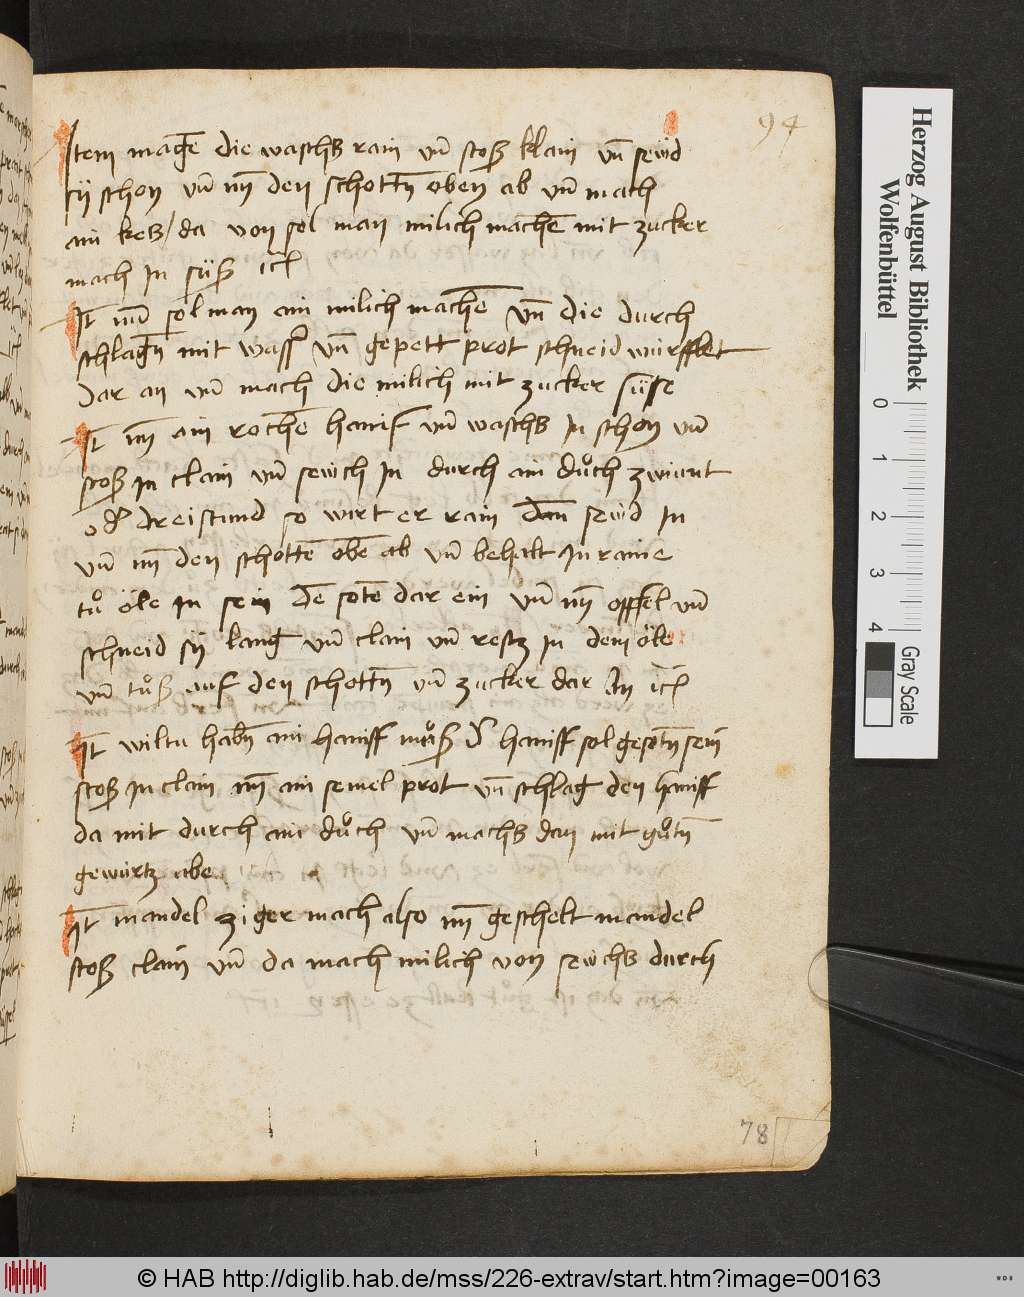 94
Item magē die waschs rain vn̄ stoß klain vn̄ sewd
sy schon vn̄ nȳ den schottn̄ oben ab vn̄ mach
ain kes / da von sol man milich machē mit zucker
mach in süß
It̄ nū sol man ain milich machē vn̄ die durch
schlagn̄ mit wass vn̄ gepett prot schneid würfflet
dar an vn̄ mach die milich mit zucker süsse
It̄ nȳ ain rochē hanif vn̄ waschs in schon vn̄
stoß in clain vn̄ seich in durch ain důch zwiunt
od dreistund so wirt er rain dan̄ sewd in
vn̄ nȳ den schottē obē ab vn̄ behalt in raine
tů öle in sein dē sotē dar ein vn̄ nȳ opffel vn̄
schneid sy lang vn̄ clain vn̄ restz in dem öle
vn̄ tůß auf den schottn̄ vn̄ zucker dar an
It̄ wiltu habn̄ ain haniff můß d haniff sol gesotn̄ sein
stoß in clain nȳ ain semel prot vn̄ schlag den haniff
da mit durch ain důch vn̄ machs dan mit gůtn̄
gewürtz abe
It̄ mandel ziger mach also nȳ geschelt mandel
stoß clain vn̄ da mach milich von seichs durch
78
Herzog August Bibliothek
Wolfenbüttel
0
1
2
3
4
Gray Scale
© HAB http://diglib.hab.de/mss/226-extrav/start.htm?image=00163